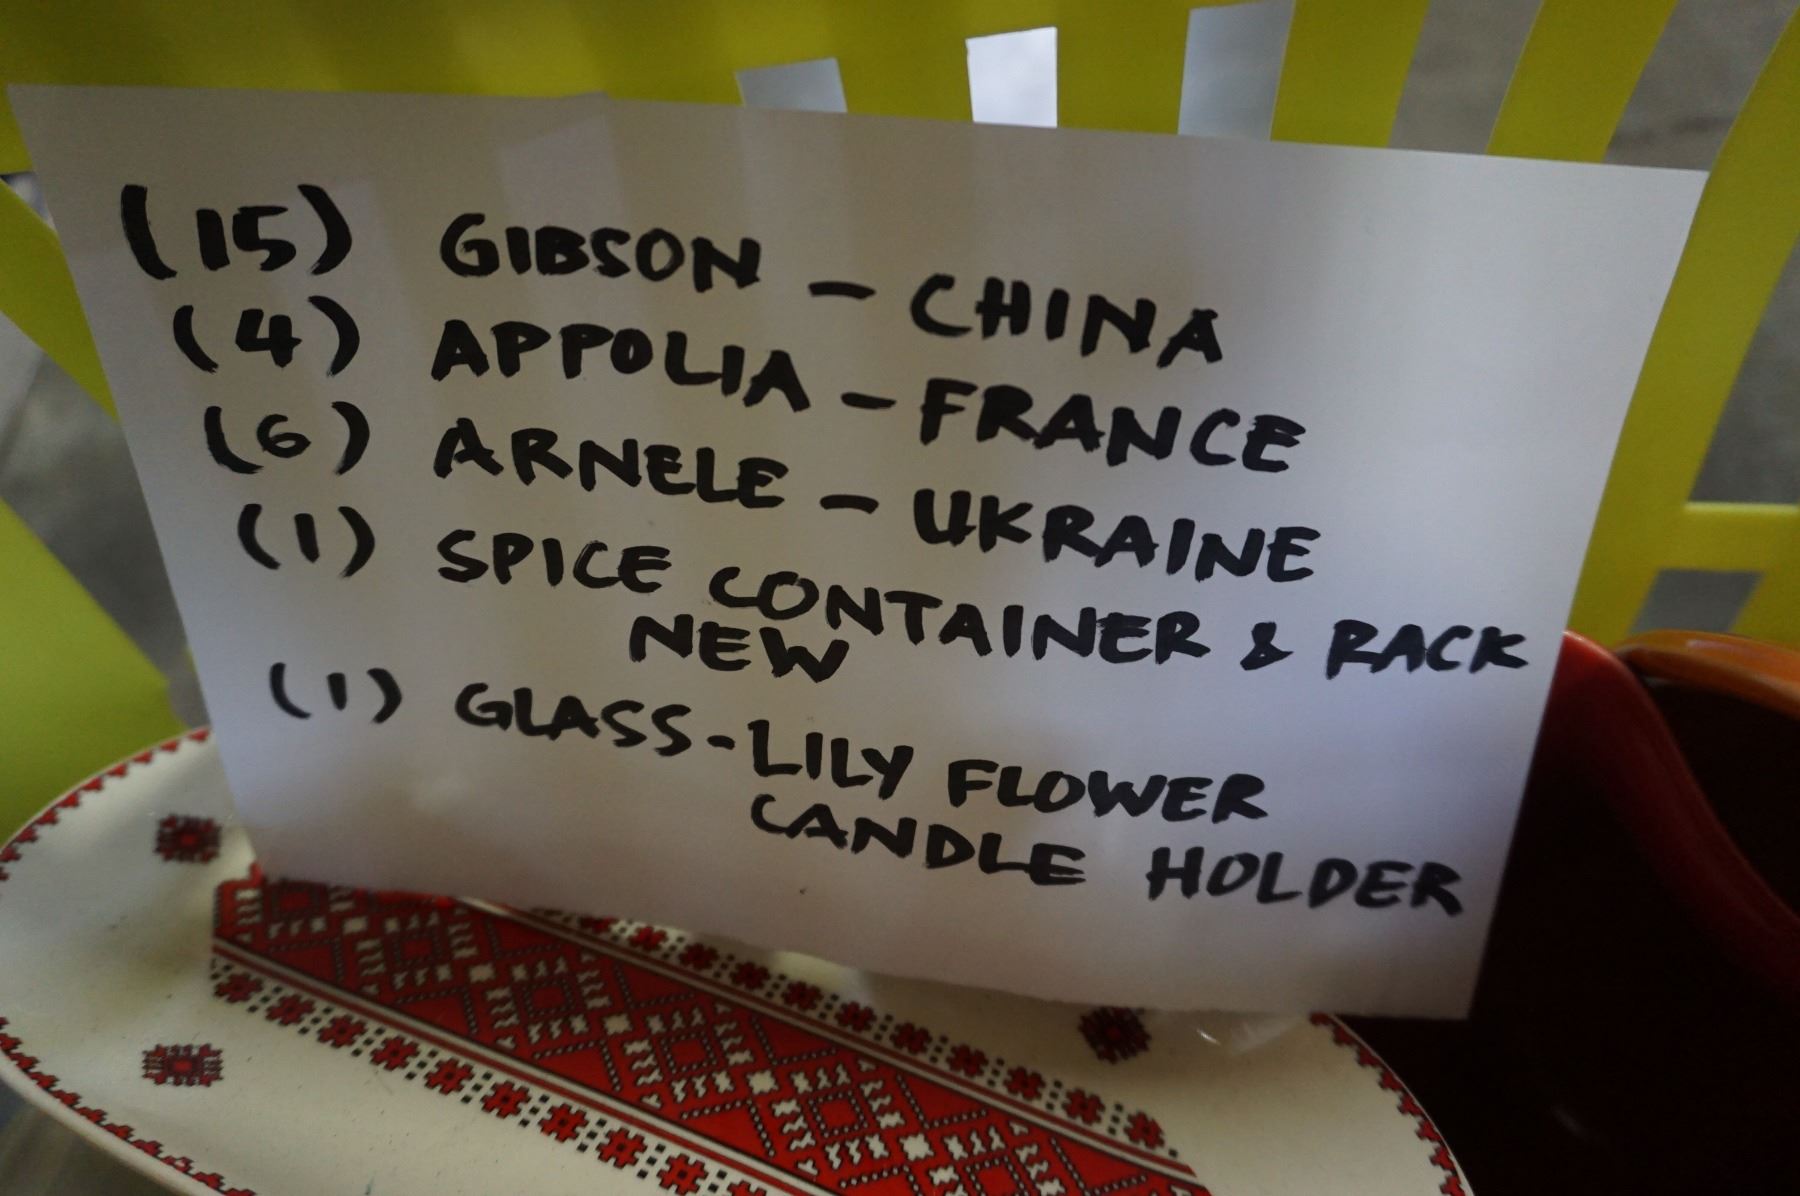 (15) GIBSON - CHINA
(4) APPOLIA - FRANCE
(6) ARNELE - UKRAINE
(1) SPICE CONTAINER & RACK
NEW
(1) GLASS - LILY FLOWER
CANDLE HOLDER